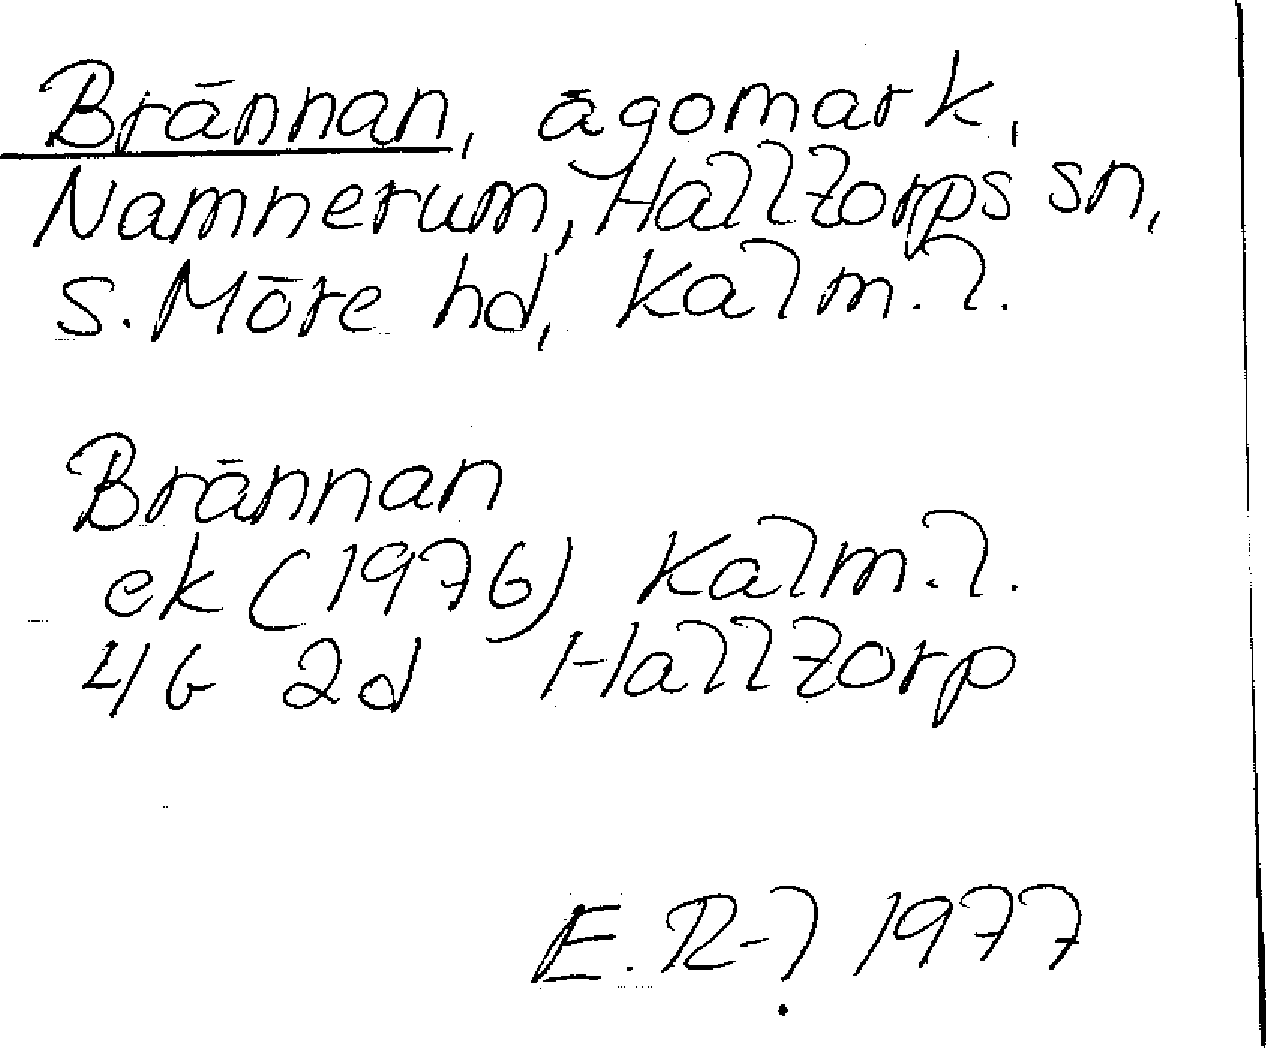 Brännan, ägomark,
Namnerum, Halltorps sn,
S. Möre hd, Kalm. l.
Brännan
ek (1976) Kalm. l.
4G 2d Halltorp
E. R-l 1977